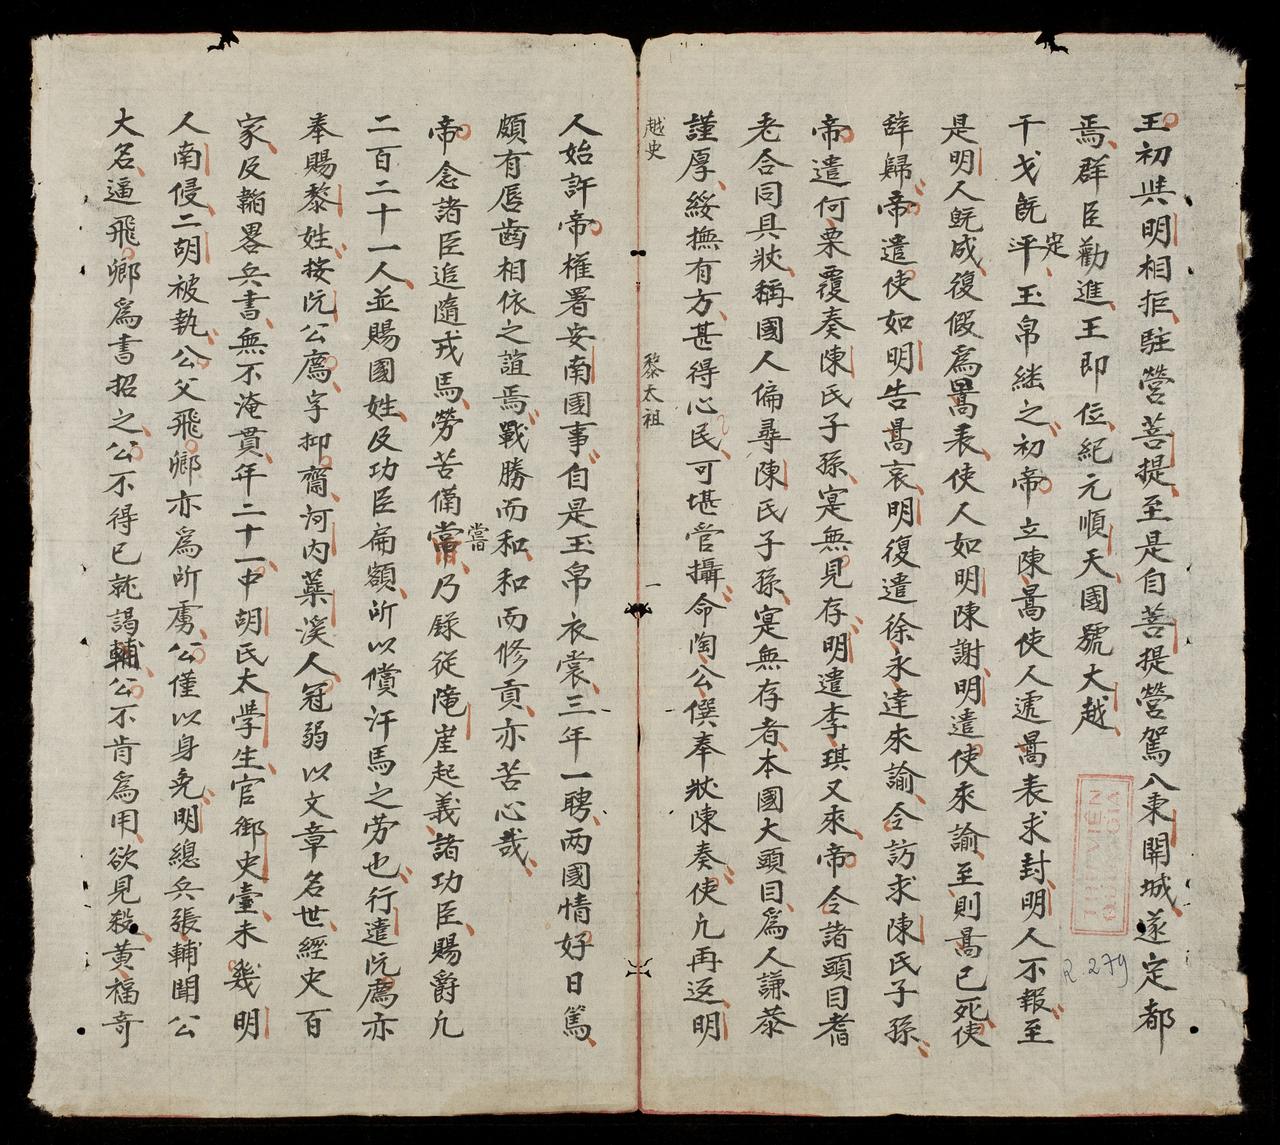 王初與明相拒駐營菩提至是自菩提營駕入東開城遂定都
焉群臣勸進王即位紀元順天國號大越
干戈既平定玉帛繼之初帝立陳暠使人遞暠表求封明人不報至
是明人旣成復假爲暠表使人如明陳謝明遣使來諭至則暠已死使
辞歸帝遣使如明告暠哀明復遣徐永達來諭令訪求陳氏子孫
帝遣何栗覆奏陳氏子孫寔無見存明遣李琪又來帝令諸頭目耆
老合同具狀稱國人偏尋陳氏子孫寔無存者本國大頭目爲人謙恭
謹厚綏撫有方甚得心民可堪管攝命陶公僎奉狀陳奏使凢再返明
越史
黎太祖
一
人始許帝權署安南國事自是玉帛衣裳三年一聘两國情好日篤
頗有唇齒相依之誼焉戰勝而和和而修貢亦苦心哉
帝念諸臣追隨戎馬勞苦備當嘗乃錄從陯崖起義諸功臣賜爵凢
二百二十一人並賜國姓及功臣扁額所以償汗馬之劳也行遣阮廌亦
奉賜黎姓按阮公廌字抑齋河内蘂溪人冠弱以文章名世經史百
家及韜畧兵書無不淹貫年二十一中胡氏太學生官御史臺未幾明
人南侵二胡被執公父飛卿亦爲所虜公僅以身免明總兵張輔聞公
大名逼飛卿爲書招之公不得已就謁輔公不肯爲用欲見殺黄福奇
THƯ VIỆN
QUỐC GIA
R.279